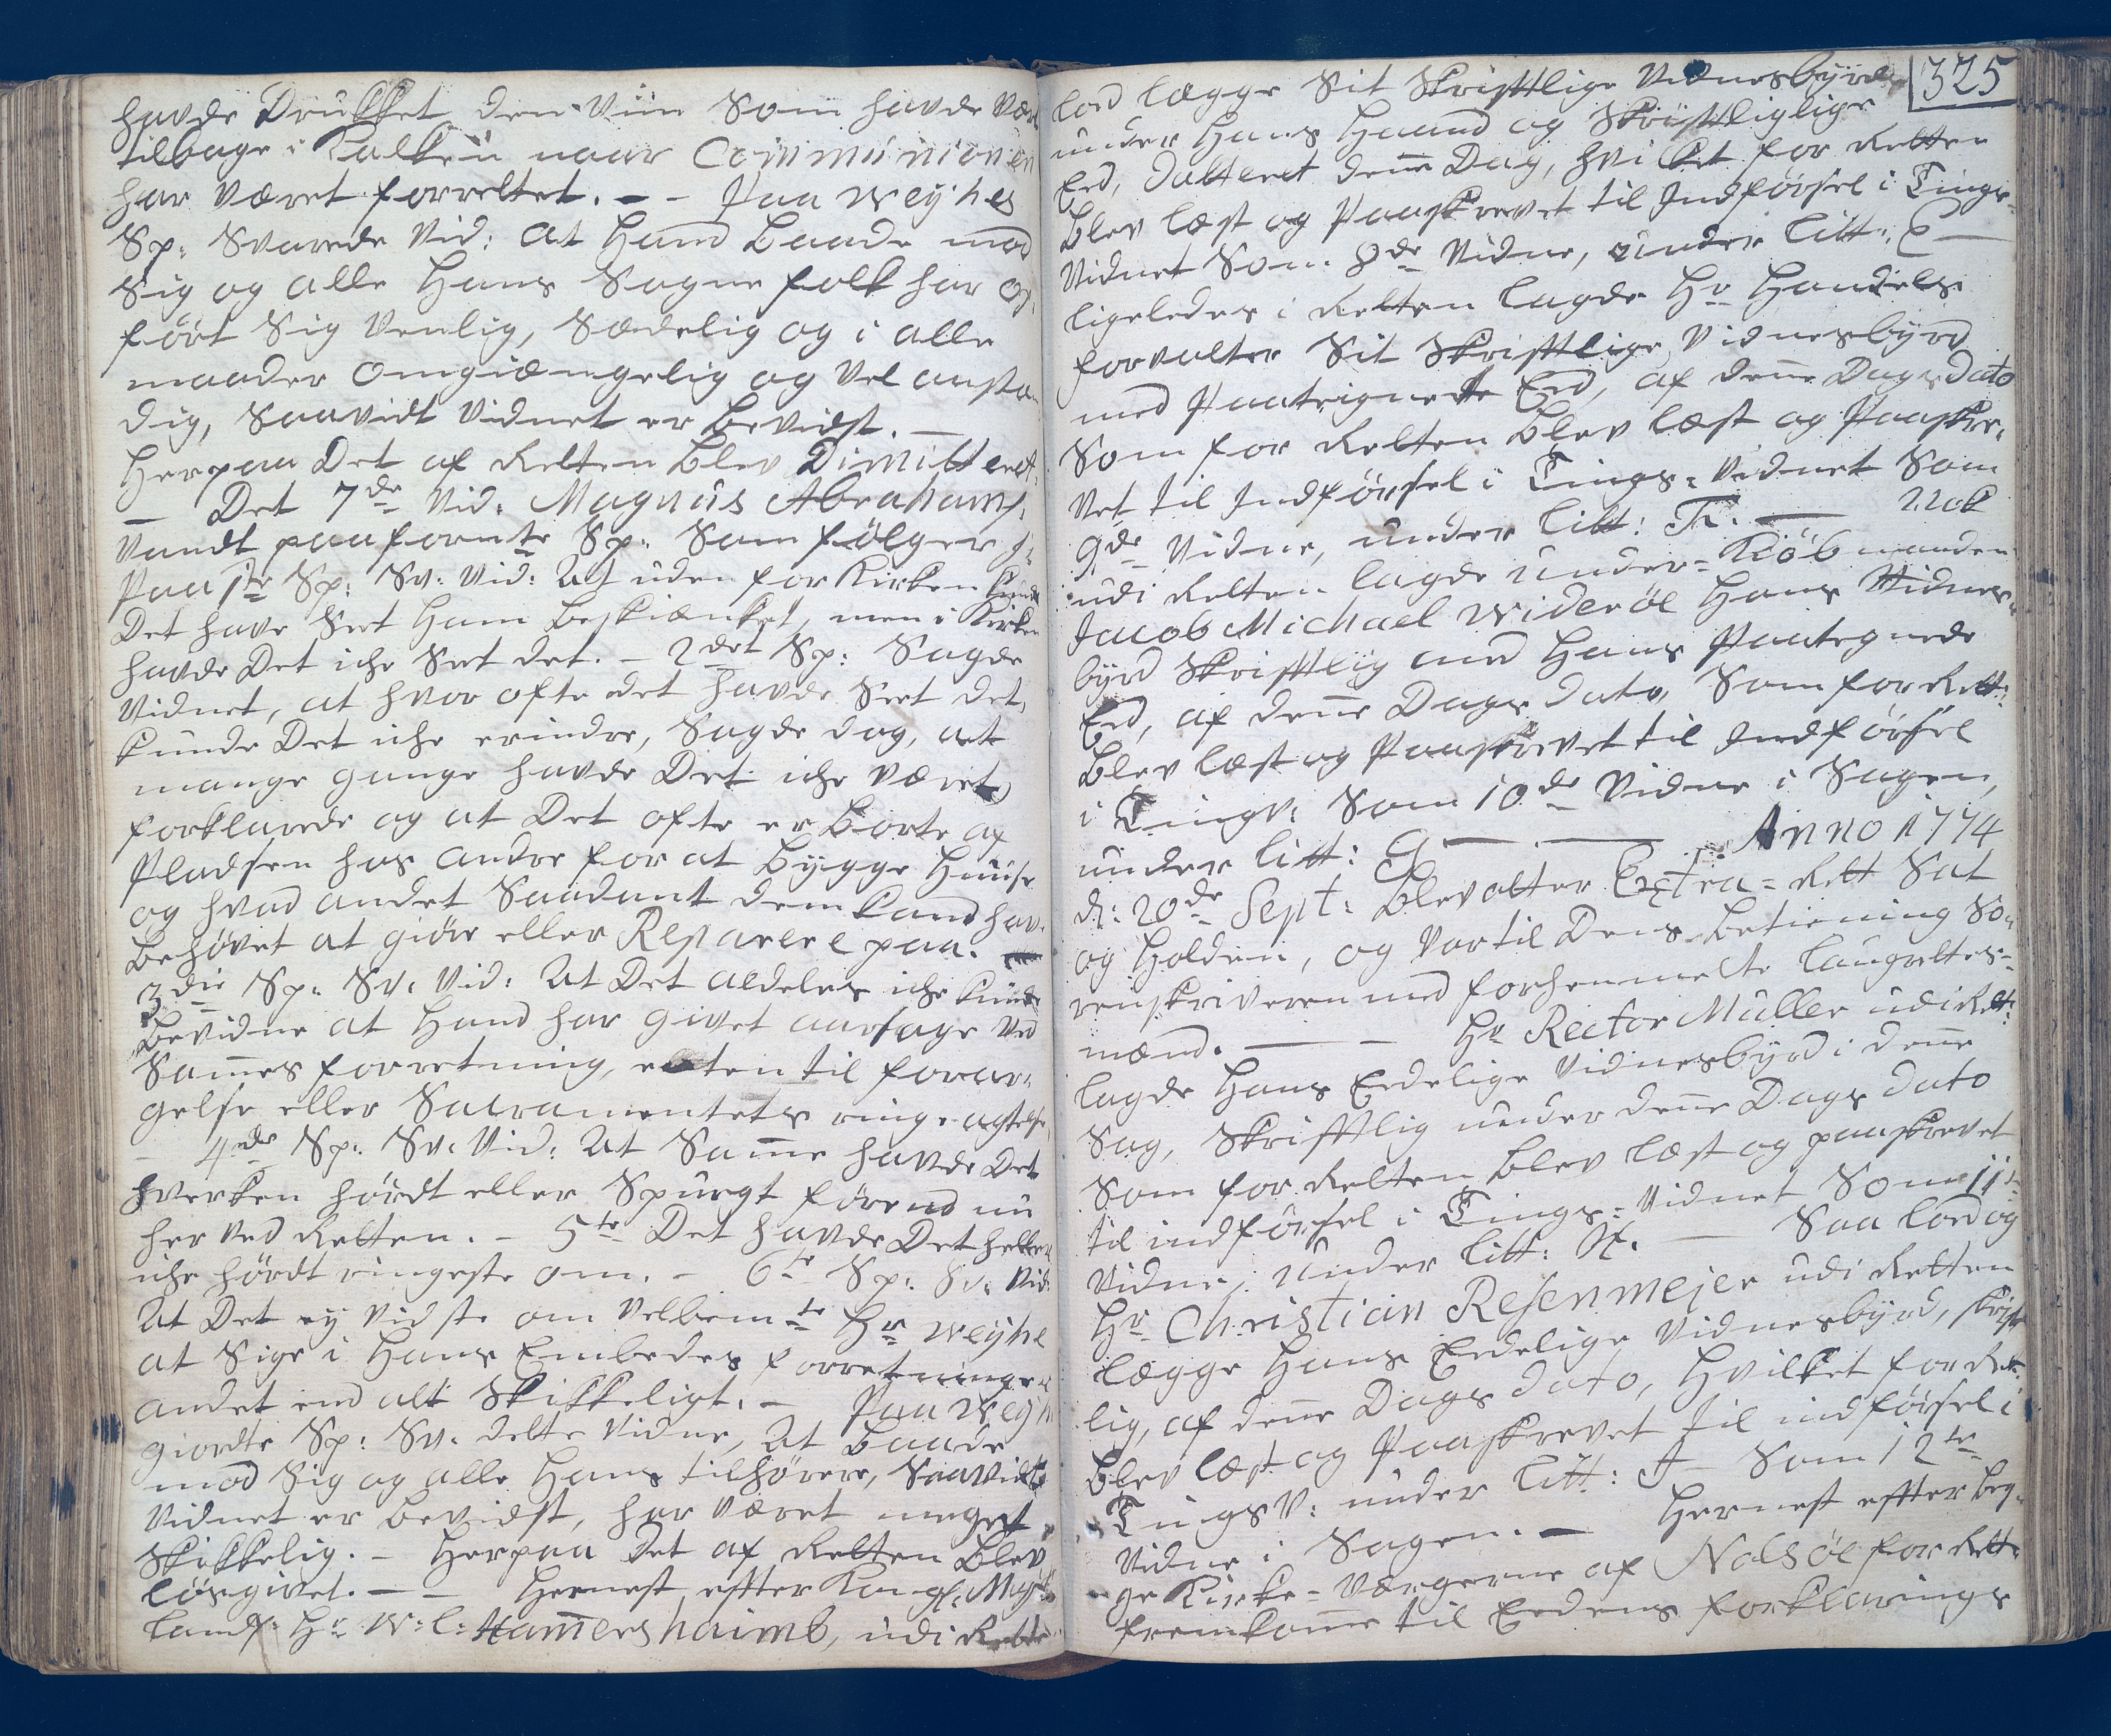 havde Drukket den Viin Som havde Vær
tilbage i Kalken naar Communionen
har Været forrettet. - - Paa Weyhes
Sp: Svarede Vid: At Hand Baade mod
Sig og alle Hans Sogne folk har op
ført Sig Venlig, Sædelig og i alle
maader Omgiængelig og Vel ansta
dig, Saavidt Vidnet er bevidst. —
Herpaa Det af Retten blev Dimitteret.
— Det 7de Vid: Magnus Abrahams:
Vandt paa fornte Sp: Som følger
Paa 1te Sp: Sv: Vid: At uden for Kirken kunde
Det have Seet Ham beskiænket, men i Kirken
havde Det iche Seet det. - 2det Sp: Sagde
Vidnet, at hvor ofte det havde Seet det,
kunde Det iche erindre, Sagde dog, at
mange gange havde Det iche Været,
forklarede og at Det ofte er borte af
Pladsen hos andre for at bygge Huuse
og hvad andet Saadant dem kand hav
behøvet at giøre eller Reparere paa. —
3die Sp: Sv: Vid: At Det aldeles iche kunde
bevidne at Hand har givet aarsage ved
Sammes forretning, enten til forar-
gelse eller Sacramentets ringe agtelse,
— 4de Sp: Sv: Vid: At Samme havde Det
hverken hørdt eller Spurgt førend nu
her Ved Retten. - 5te Det havde Det heller
iche hørdt ringeste om. - 6te Sp: Sv: Vid:
At Det ey Vidste om Velbemte Hr Weyhe
at Sige i Hans Embedes forretninger
andet end alt Skikkeligt. - Paa Weyh
giordte Sp: Sv: dette Vidne, At baade
mod Sig og alle Hans tilhørere, Saavidt
Vidnet er bevidst, har Været meget
Skikkelig. - Herpaa Det af Retten blev
løsgivet. - — Hernest effter Kongl: Mays
Landf: Hr W: L: Hammershaimb, udi Rette
325
lod lægge Sit Skrifftlige Vidnesbyrd
under Hans Haand og Skrifftliglige
Eed, datteret denne Dag, hvilket for Retten
blev læst og Paaskrevet til Indførsel i Tings-
Vidnet Som 8de Vidne, under Litt: E —
ligeledes i Retten lagde Hr Handels
forvalter Sit Skrifftlige Vidnesbyrd
med Paateignede Eed, af denne Dags dato
Som for Retten blev læst og Paaskre-
vet til Indførsel i Tings-Vidnet Som
9de Vidne, under Litt: F. — Nok
udi Retten lagde Under-Kiøbmanden
Jacob Michael Widerøe Hans Vidnes-
byrd Skrifftlig med Hans Paategnede
Eed, af denne Dags dato, Som for Rett:
blev læst og Paaskrevet til Indførsel
i Tingv: Som 10de Vidne i Sagen,
under Litt: G — — Anno 1774
d: 20de Sept: blev atter Extra-Rett Sat
og Holden, og Var til Dens betiening So-
renskriveren med forhenmelte Laugrettes-
mænd. — — Hr Rector Müller udi Rett:
lagde Hans Eedelige Vidnesbyrd i denne
Sag, Skrifftlig under denne Dags dato
Som for Retten blev læst og paaskrevet
til indførsel i Tings-Vidnet Som 11te
Vidne, under Litt: H. — Saa lod og
Hr Christian Resenmejer udi Retten
lægge Hans Eedelige Vidnesbyrd, skrift
lig, af denne Dags dato, Hvilket for Ret:
blev læst og Paaskrevet til indførsel i
TingsV: under Litt: I Som 12te
Vidne i Sagen. — Hernest effter beg-
ge Kirke-Værgerne af Nolsøe for Rett
fremkomme til Eedens forklarings